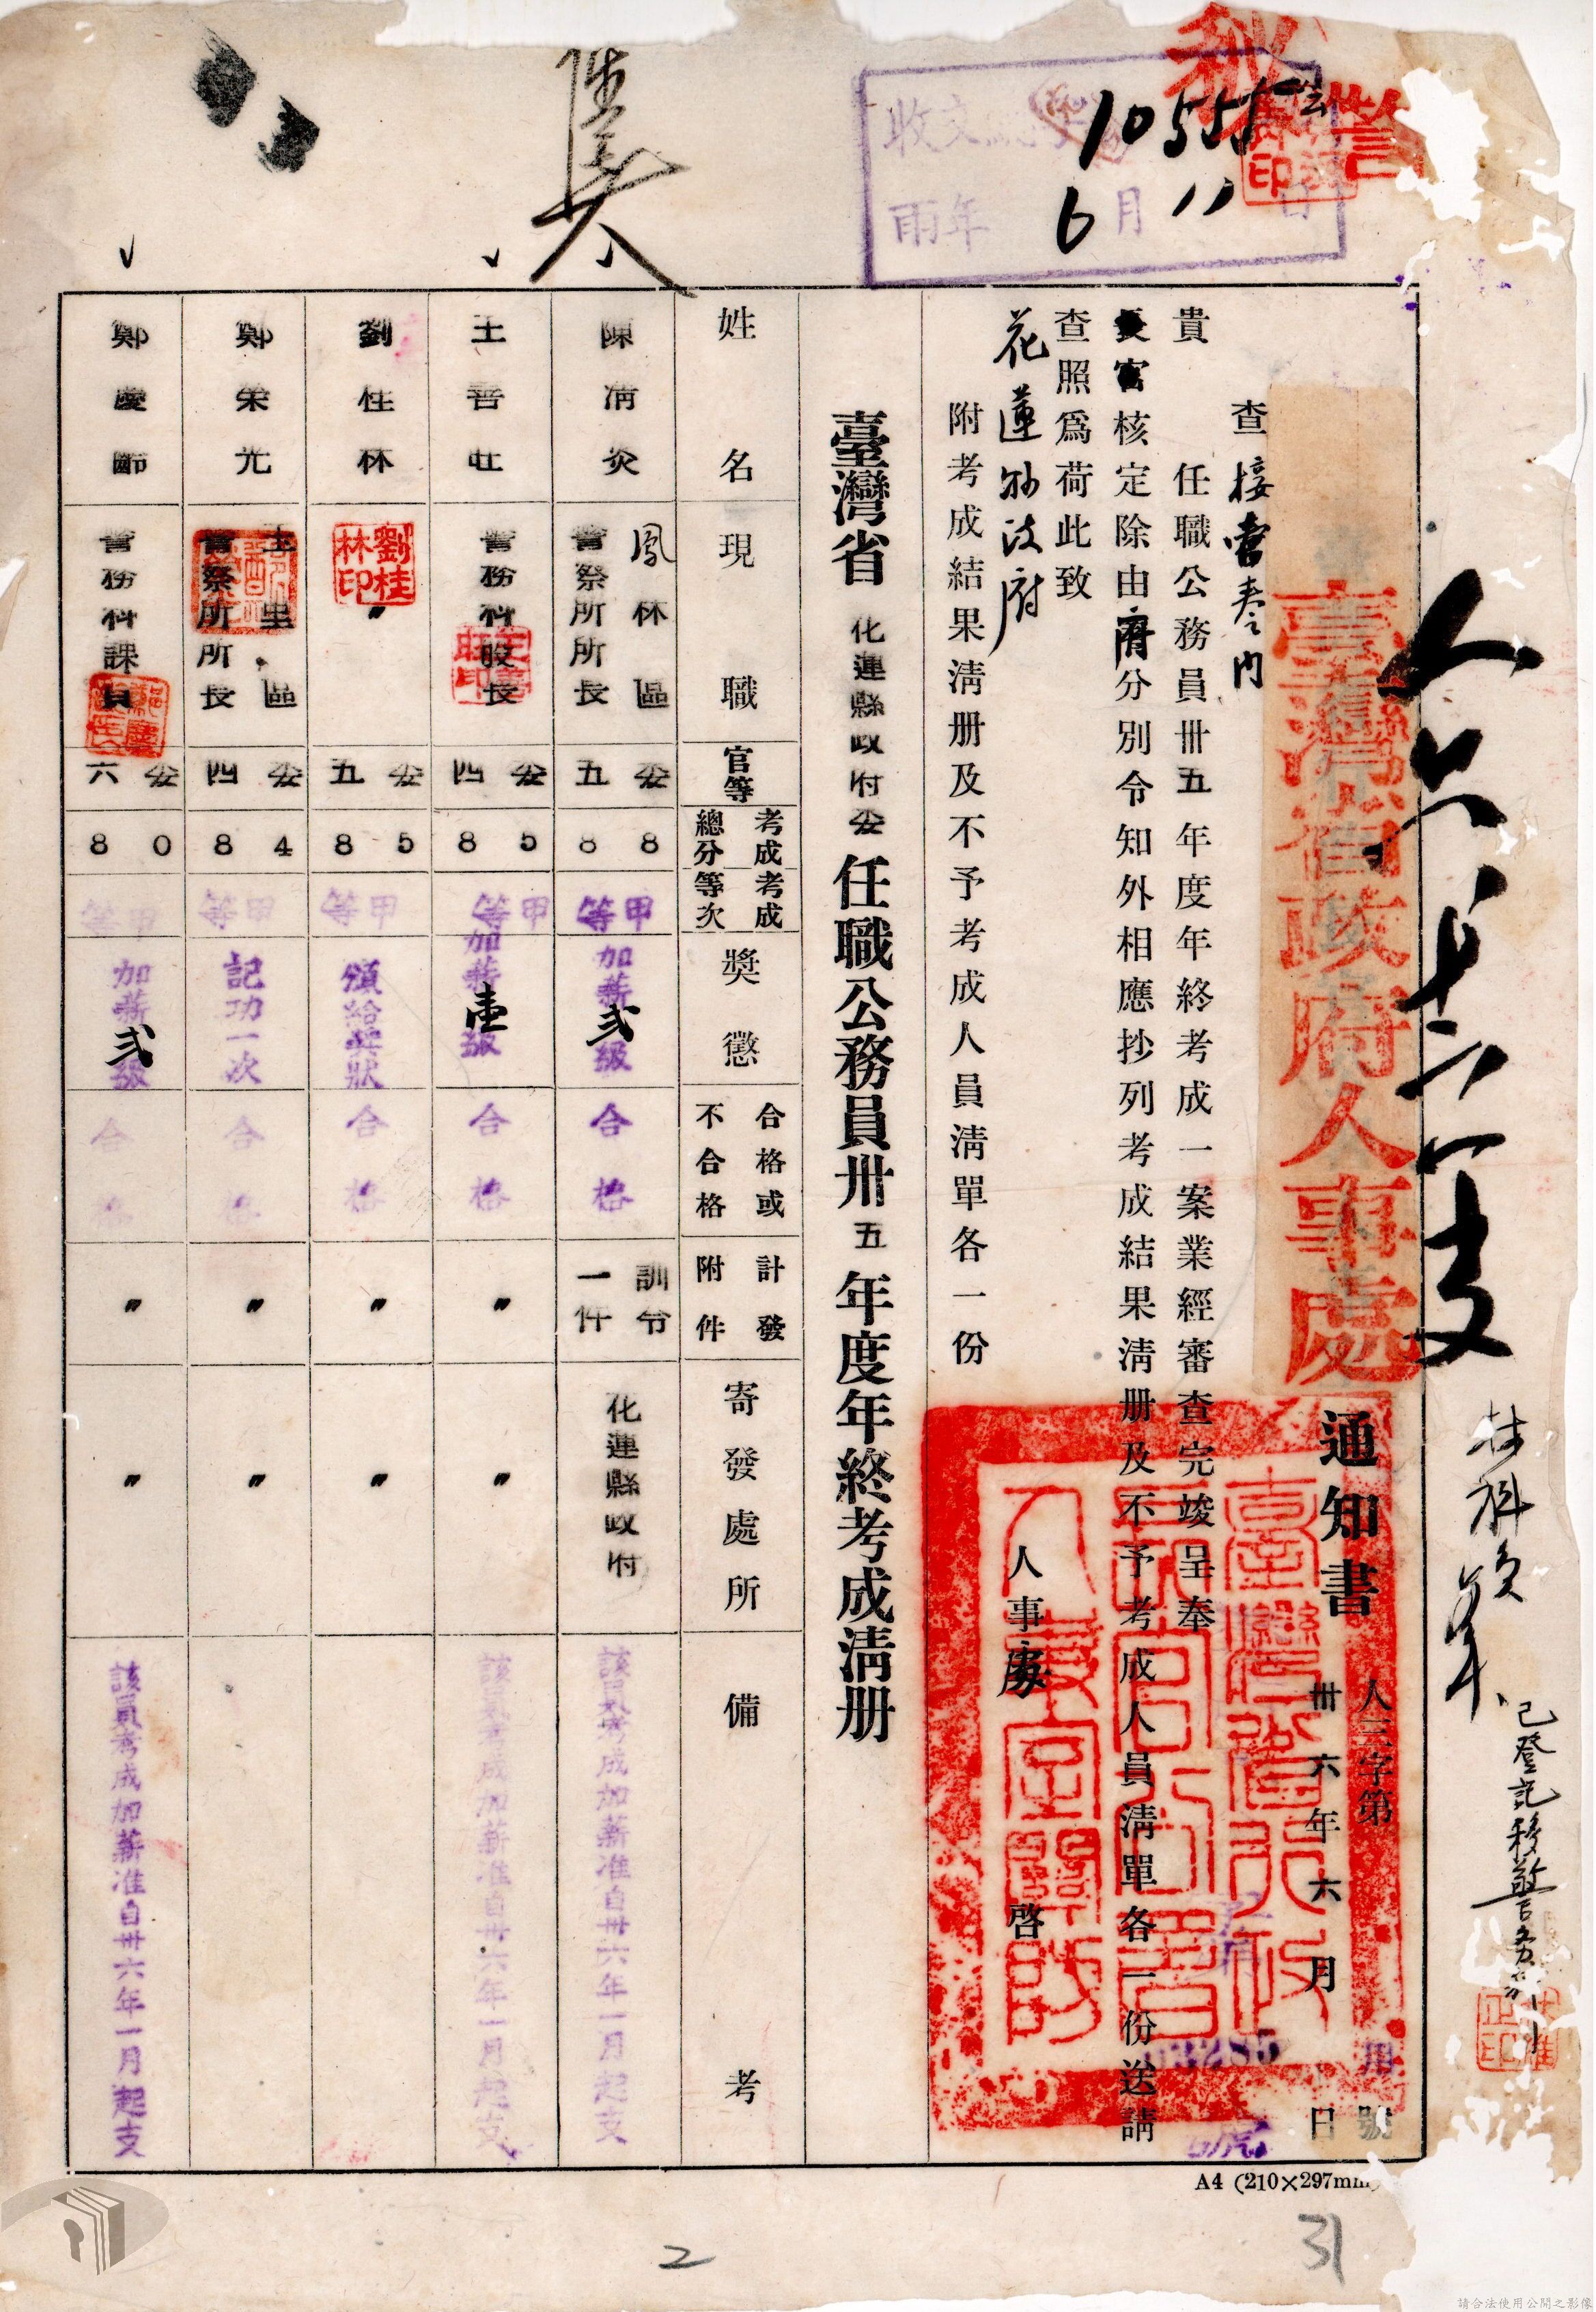 10555
6月11日
臺灣省政府人事處
通知書
人三字第
號
卅六年六月
日
查接管卷內
貴
任職公務員卅五年度年終考成一案業經審查完竣呈奉
長官核定除由府分別令知外相應抄列考成結果清册及不予考成人員清單各一份送請
查照爲荷此致
花蓮縣政府
人事處
啓
附考成結果清册及不予考成人員清單各一份
臺灣省花蓮縣政府委任職公務員卅五年度年終考成清册
姓名
現職
官等
考成總分
考成等次
獎懲
合格或不合格
計發附件
寄發處所
備考
陳清炎
鳳林區警察所所長
委五
88
甲等
加薪弍級
合格
訓令一件
花蓮縣政府
該員考成加薪准自卅六年一月起支
王善旺
警務科股長
委四
85
甲等
加薪壹級
合格
〃
〃
該員考成加薪准自卅六年一月起支
劉桂林
〃
劉桂林印
委五
85
甲等
頒給獎狀
合格
〃
〃
鄭榮光
玉里區警察所所長
委四
84
甲等
記功一次
合格
〃
〃
鄭慶節
警務科課員
委六
80
甲等
加薪弍級
合格
〃
〃
該員考成加薪准自卅六年一月起支
A4 (210×297mm)
2
31
請合法使用公開之影像